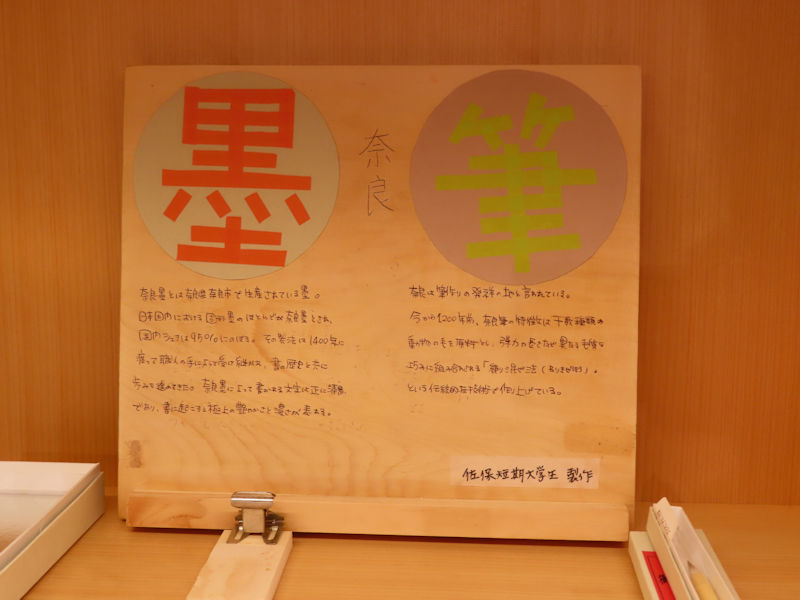 墨
奈良
筆
奈良墨とは奈良県奈良市で生産されている墨。
日本国内における固形墨のほとんどが奈良墨とされ、
国内シェアは95%にのぼる。その製法は1400年に
渡って職人の手によって受け継がれ、書の歴史と共に
歩みを進めてきた。奈良墨によって書かれる文字は正に漆黒
であり、書に起こすと極上の艶やかさと濃さが表れる。
奈良は筆作りの発祥の地と言われている。
今から1200年前、奈良筆の特徴は十数種類の
動物の毛を原料とし、弾力の長さなど異なる毛質を
巧みに組み合わせる「練り混ぜ法(ねりまぜほう)」
という伝統的な技術で作り上げている。
佐保短期大学生 製作